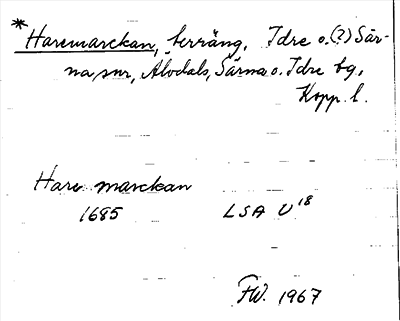 * Haremarckan, terräng, Idre o.(?) Sär-
na snr, Älvdals, Särna o. Idre tg,
Kopp. l.
Hare marckan
1685 LSA U 18
FW. 1967